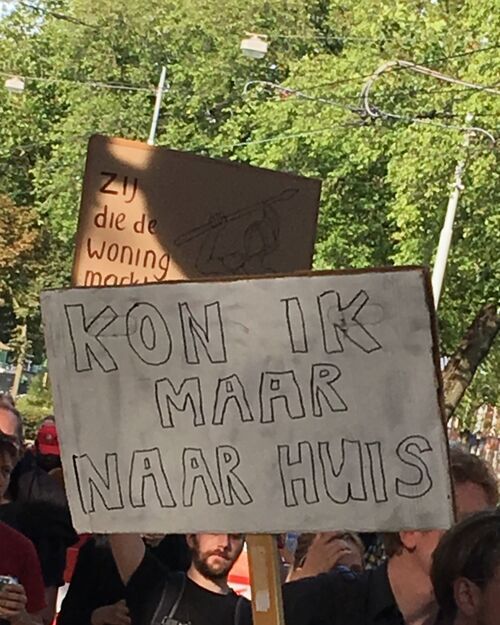 ZIJ
die de
woning
markt
KON IK
MAAR
NAAR HUIS